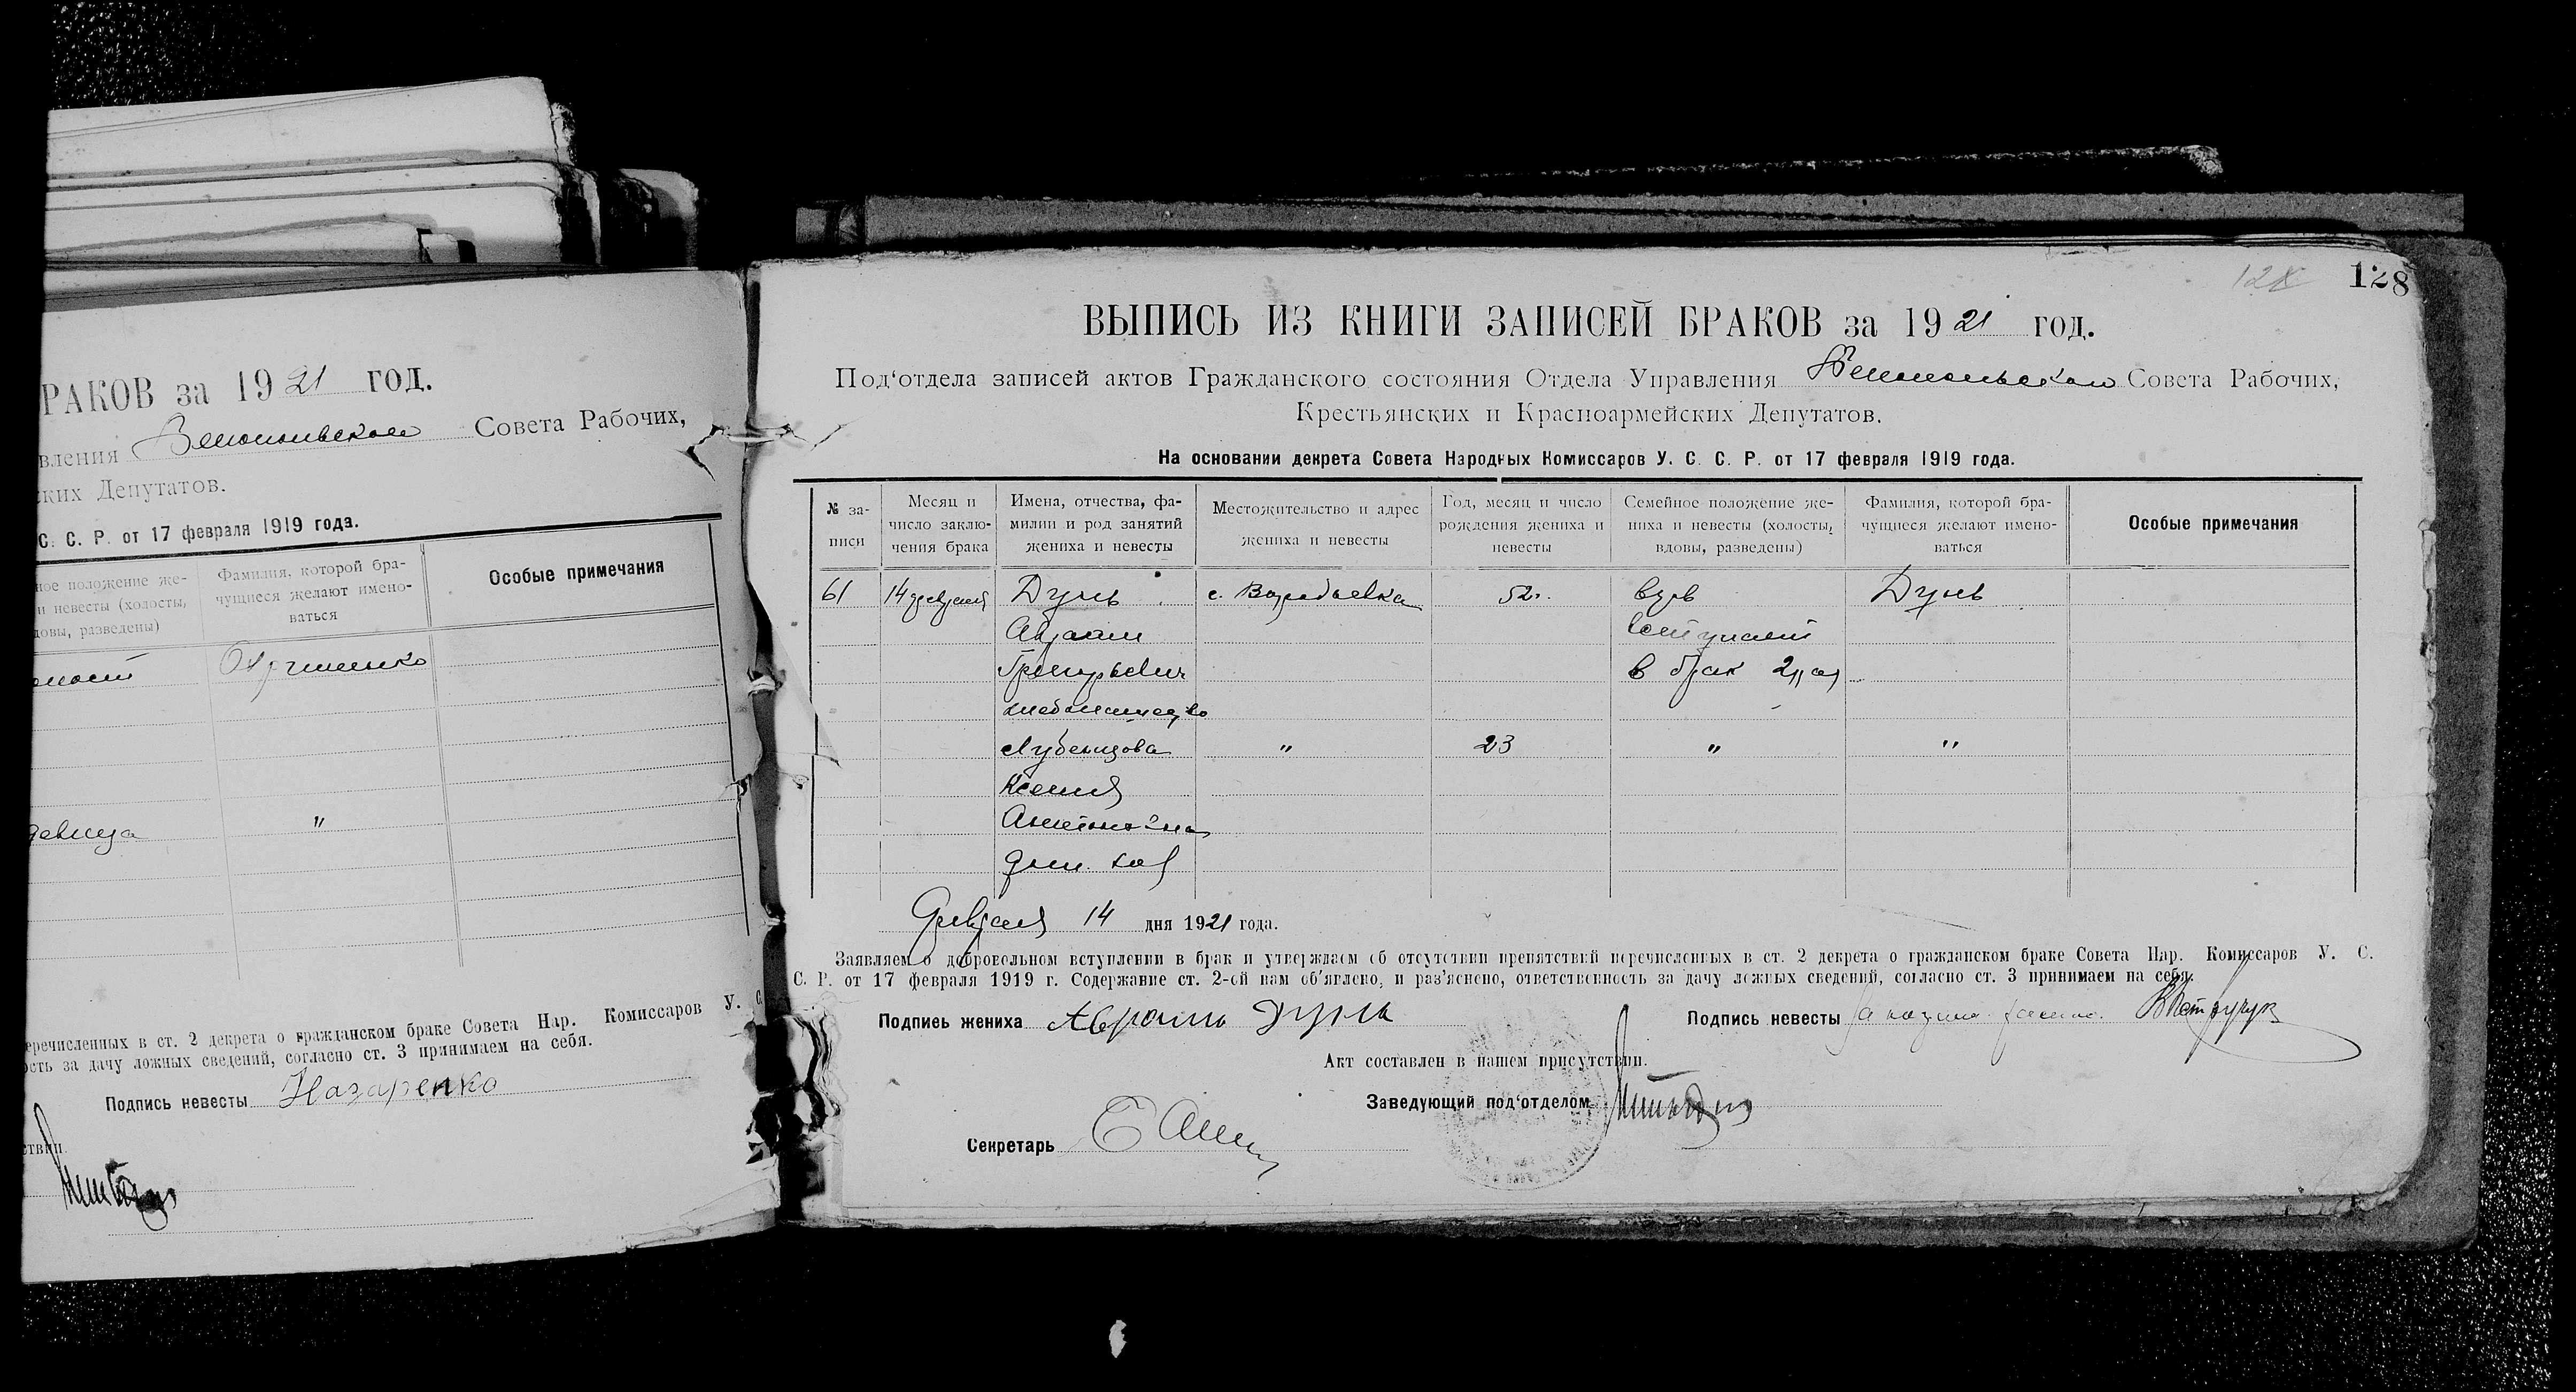 РАКОВ за 1921 год.
вления Зеньковского Совета Рабочих,
ских Депутатов.
С. С. Р. от 17 февраля 1919 года.
ное положение же-
и невесты (холосты,
довы, разведены)
Фамилия, которой бра-
чущиеся желают имено-
ваться
Особые примечания
девица
"
еречисленных в ст. 2 декрета о гражданском браке Совета Нар. Комиссаров У. С.
ость за дачу ложных сведений, согласно ст. 3 принимаем на себя.
Подпись невесты Назаренко
ствии.
128
128
ВЫПИСЬ ИЗ КНИГИ ЗАПИСЕЙ БРАКОВ за 1921 год.
Под'отдела записей актов Гражданского состояния Отдела Управления Совета Рабочих,
Крестьянских и Красноармейских Депутатов.
На основании декрета Совета Народных Комиссаров У. С. С. Р. от 17 февраля 1919 года.
№ за-
писи
Месяц и
число заклю-
чения брака
Имена, отчества, фа-
милии и род занятий
жениха и невесты
Местожительство и адрес
жениха и невесты
Год, месяц и число
рождения жениха и
невесты
Семейное положение же-
ниха и невесты (холосты,
вдовы, разведены)
Фамилия, которой бра-
чущиеся желают имено-
ваться
Особые примечания
61 14 февраля Дунь с. Воробьевка 52 г. вдов Дунь
Авраам вступает
Григорьевич в брак 2й раз
хлебопашество
Лубенцова " 23 " "
Ксения
Антоновна
дом. хоз
Февраля 14 дня 1921 года.
Заявляем о добровольном вступлении в брак и утверждаем об отсутствии препятствий перечисленных в ст. 2 декрета о гражданском браке Совета Нар. Комиссаров У. С.
С. Р. от 17 февраля 1919 г. Содержание ст. 2-ой нам об'явлено, и раз'яснено, ответственность за дачу ложных сведений, согласно ст. 3 принимаем на себя.
Подпись жениха Аврамъ Дунь
Подпись невесты
Акт составлен в нашем присутствии.
Заведующий под'отделом
Секретарь